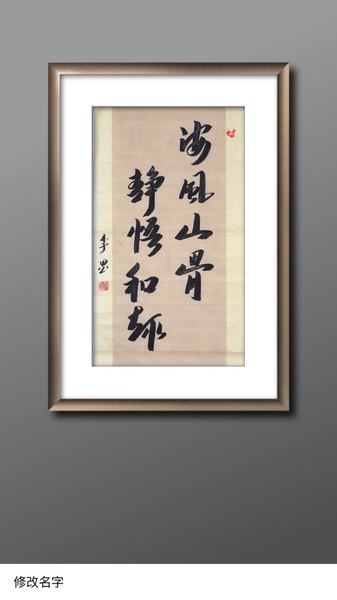 海风山骨
静悟和趣
李思
修改名字